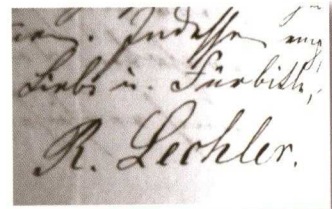 Indessen
Liebe u. Fürbitte,
R. Lechler.